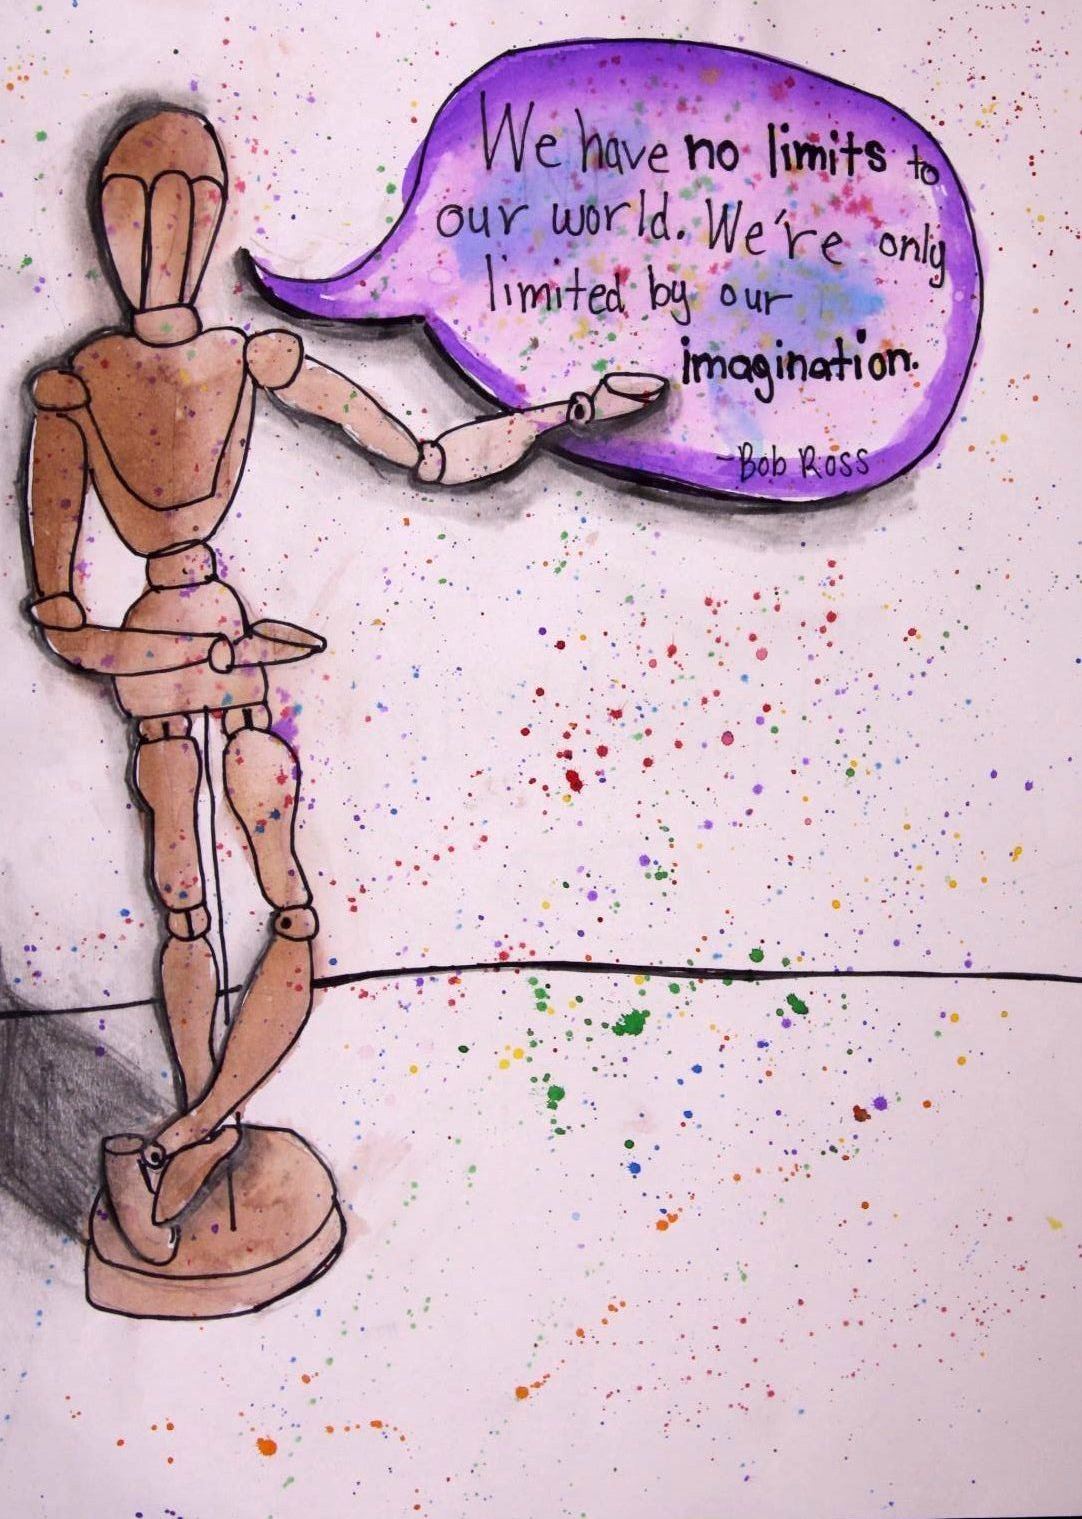 We have no limits to
our world. We're only
limited by our
imagination.
-Bob Ross